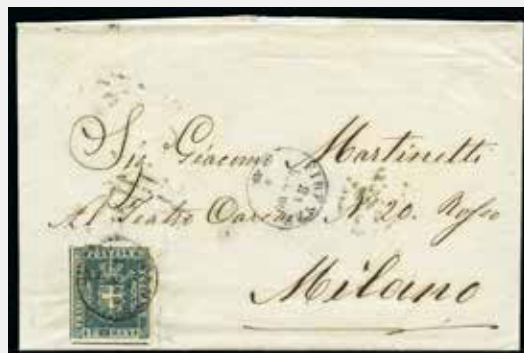 Sig. Giacomo Martinetti
Al Teatro Carcano N.° 20. Rosso
Milano